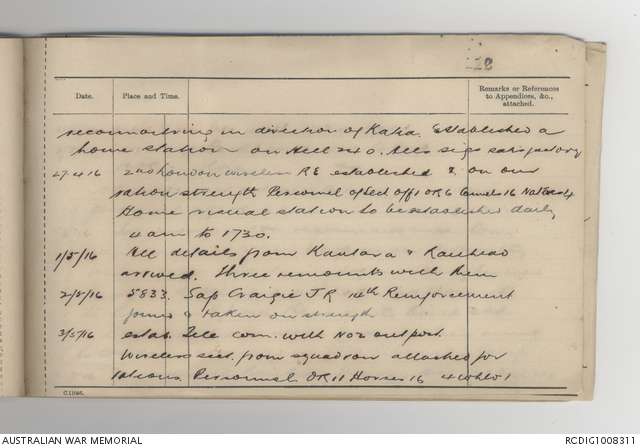 112
Date.
Place and Time.
Remarks or References
to Appendices, &c.,
attached.
reconnoitring in direction of Katia. Established a
home station on Hill 240. All sigs satisfactory
27 4 16 2nd London Wireless R.E established & on our
ration strength Personnel offrs OR 6 Camels 16 Natives 4
Home visual station to be established daily
4 am to 1730.
1/5/16 All details from Kantara & Railhead
arrived. Three remounts with them
2/5/16 5833. Sap Craigie J R 14th Reinforcement
joined & taken on strength
3/5/16 estab. Tele com. with No 2 outpost.
Wireless sect. from squadron attached for
rations Personnel OR 11 Horses 16 4 wheel 1
AUSTRALIAN WAR MEMORIAL
RCDIG1008311